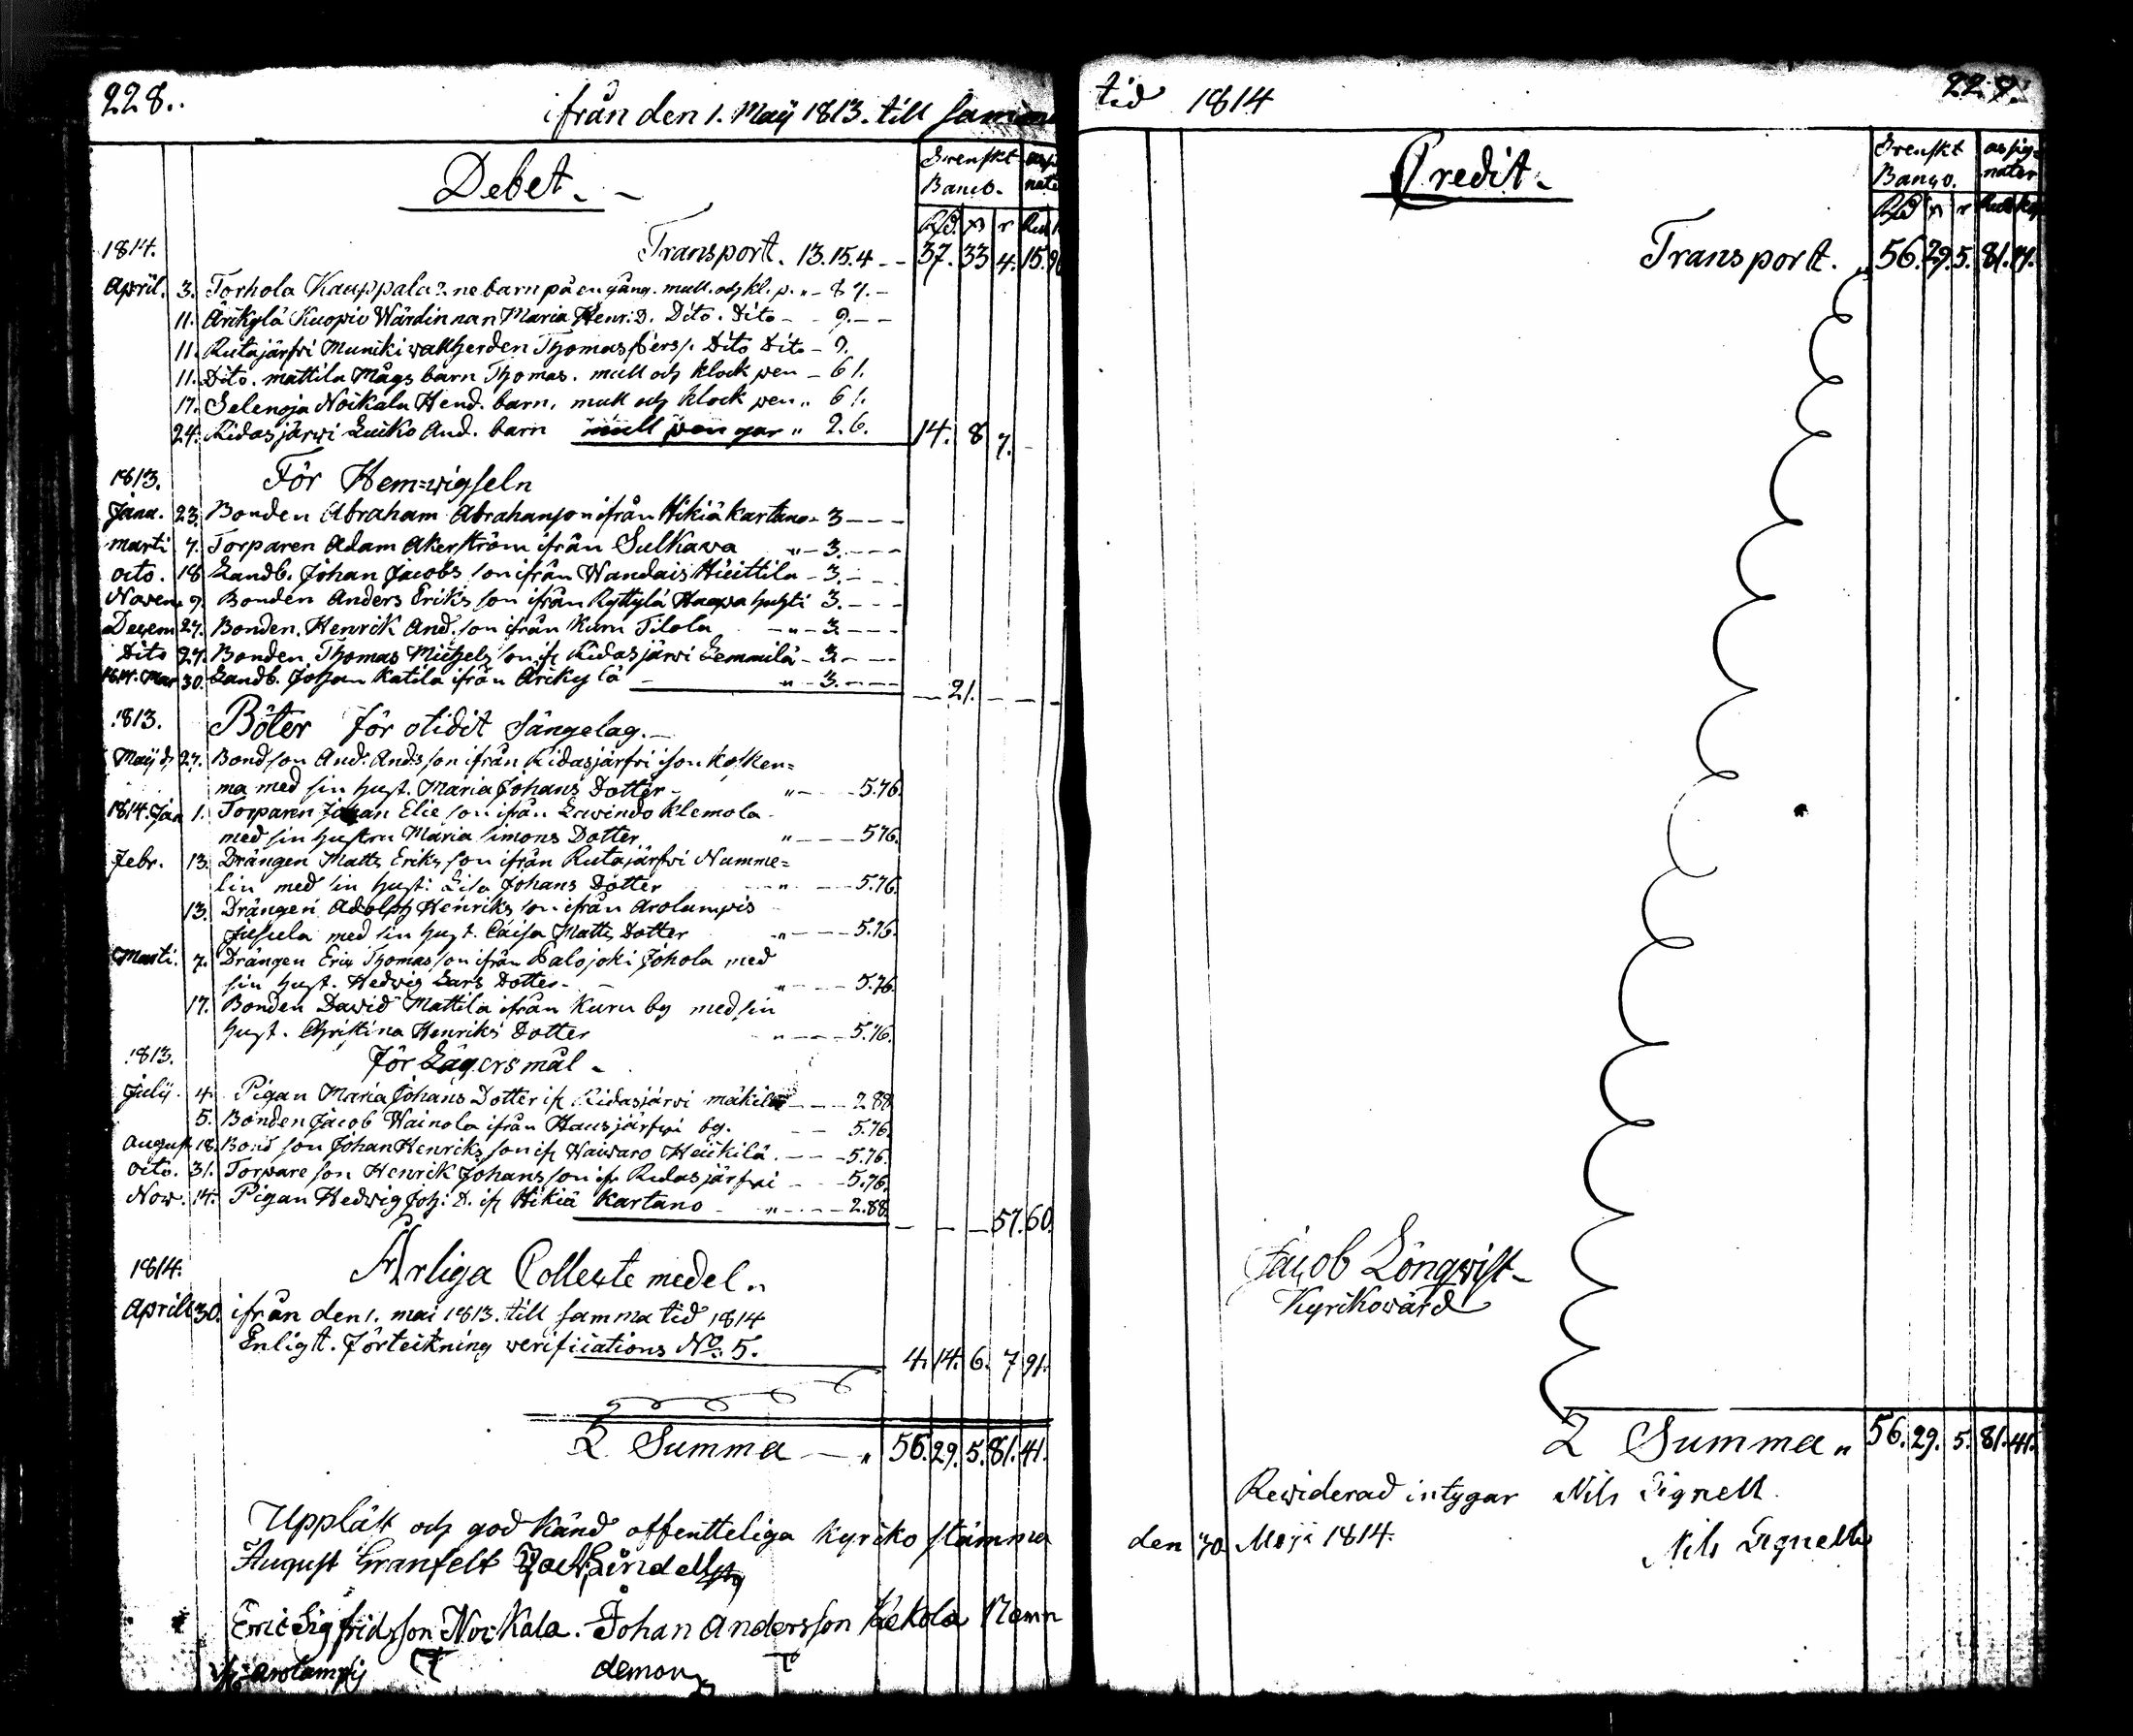 228.
ifrån den 1. Maÿ 1813. till samma
Debet.
Svenskt Banco.
Rd. ß r
1814.
Transport. 13.15.4 - - 37. 33 4. 15.
April. 3. Torhola Kauppala 2 ne barn på en gång. mull. och kl. p. " - 8 7. -
11. Ärikylä Kuopio Wärdinnan Maria Henr. D. Dito. Dito - - 9. - -
11. Rutajärfvi Muniki vallherden Thomas Dito Dito - 9.
11. Dito. mattila Mågs barn Thomas. mull och klock pen - 6 1.
17. Selenoja Noikala Hend. barn, mull och klock pen " 6 1.
24. Ridasjärwi And. barn mull pengar " 2. 6. 14. 8 7. -
1813. För Hem=wigseln
Janu. 23. Bonden Abraham Abrahamson ifrån Hikiä kartano - 3 - - -
marti 7. Torparen Adam Akerström ifrån Sulkava " - 3. - - -
octo. 18 Landb. Johan Jacobs son ifrån Wandais Hiettila - 3. - - -
Novem 9. Bonden Anders Eriks son ifrån Ryttylä Haapa huhti 3. - - -
Decem 27. Bonden. Henrik And. son ifrån Kuru Tilola - " - 3. - - -
Dito 27. Bonden Thomas Michels son if. Ridasjärvi Lemmilä - 3. - - -
1814. Mar 30. Landb. Johan Katila ifrån Ärikylä - " - 3. - - - - 21. - - -
1813. Böter för otidit Sängelag. -
Maÿ d. 27. Bondson And. Ands son ifrån Ridasjärfvi ison Kosken=
ma med sin hust. Maria Johans Dotter - " - - - 5.76.
1814. Jan 1. Torparen Johan Elie son ifrån Lavindo Klemola
med sin hustru Maria Simons Dotter " - - - 576.
Febr. 13. Drängen Matts Eriks son ifrån Rutajärfvi Numme=
lin med sin hust: Lisa Johans Dotter " - - - 5.76.
13. Drängen Adolph Henriks son ifrån Arolampis
med sin hust. Caisa Matts Dotter - " - - - 5.76.
Marti. 7. Drängen Eric Thomas son ifrån Palojoki Johola med
sin hust. Hedvig Lars Dotter - " - - - 5.76.
17. Bonden David Mattila ifrån Kuru by med sin
hust. Christina Henriks Dotter " - - - 5.76.
1813. För Lägersmål -
July. 4. Pigan Maria Johans Dotter if. Ridasjärvi mäkilä - - - 2 88
5. Bonden Jacob Wainola ifrån Hausjärfvi by. - - 5.76.
August 18. Bond son Johan Henriks son if. Waiwaro Heikilä. - - - 5.76.
octo. 31. Torpare son Henrik Johans son if. Ridasjärfvi - - - 5.76.
Nov. 14. Pigan Hedwig Joh: D. if. Hikiä Kartano - " - - - 2.88. - - - 57. 60.
1814. Årliga Collecte medel.
Aprill 30. ifrån den 1. mai 1813. till samma tid 1814
Enligt. förteckning verifications No. 5. 4. 14. 6. 7 91.
Summa - " 56. 29. 5. 81. 41.
Uppläst och god känd offentteliga Kyrko stämma
August Granfelt
Eric Sigfridsson Noikala. Johan Andersson Kekola Nemn
Arolampi demon
tid 1814
229.
Credit.
Svenskt Banco. assig=nater
Rd ß r Rub kop
Transport. " 56. 29. 5. 81. 41.
Jacob Lönqvist
Kyrkowärd
Summa " 56. 29. 5. 81. 41.
Reviderad intygar Nils Lignell.
den 30 Maji 1814. Nils Lignell